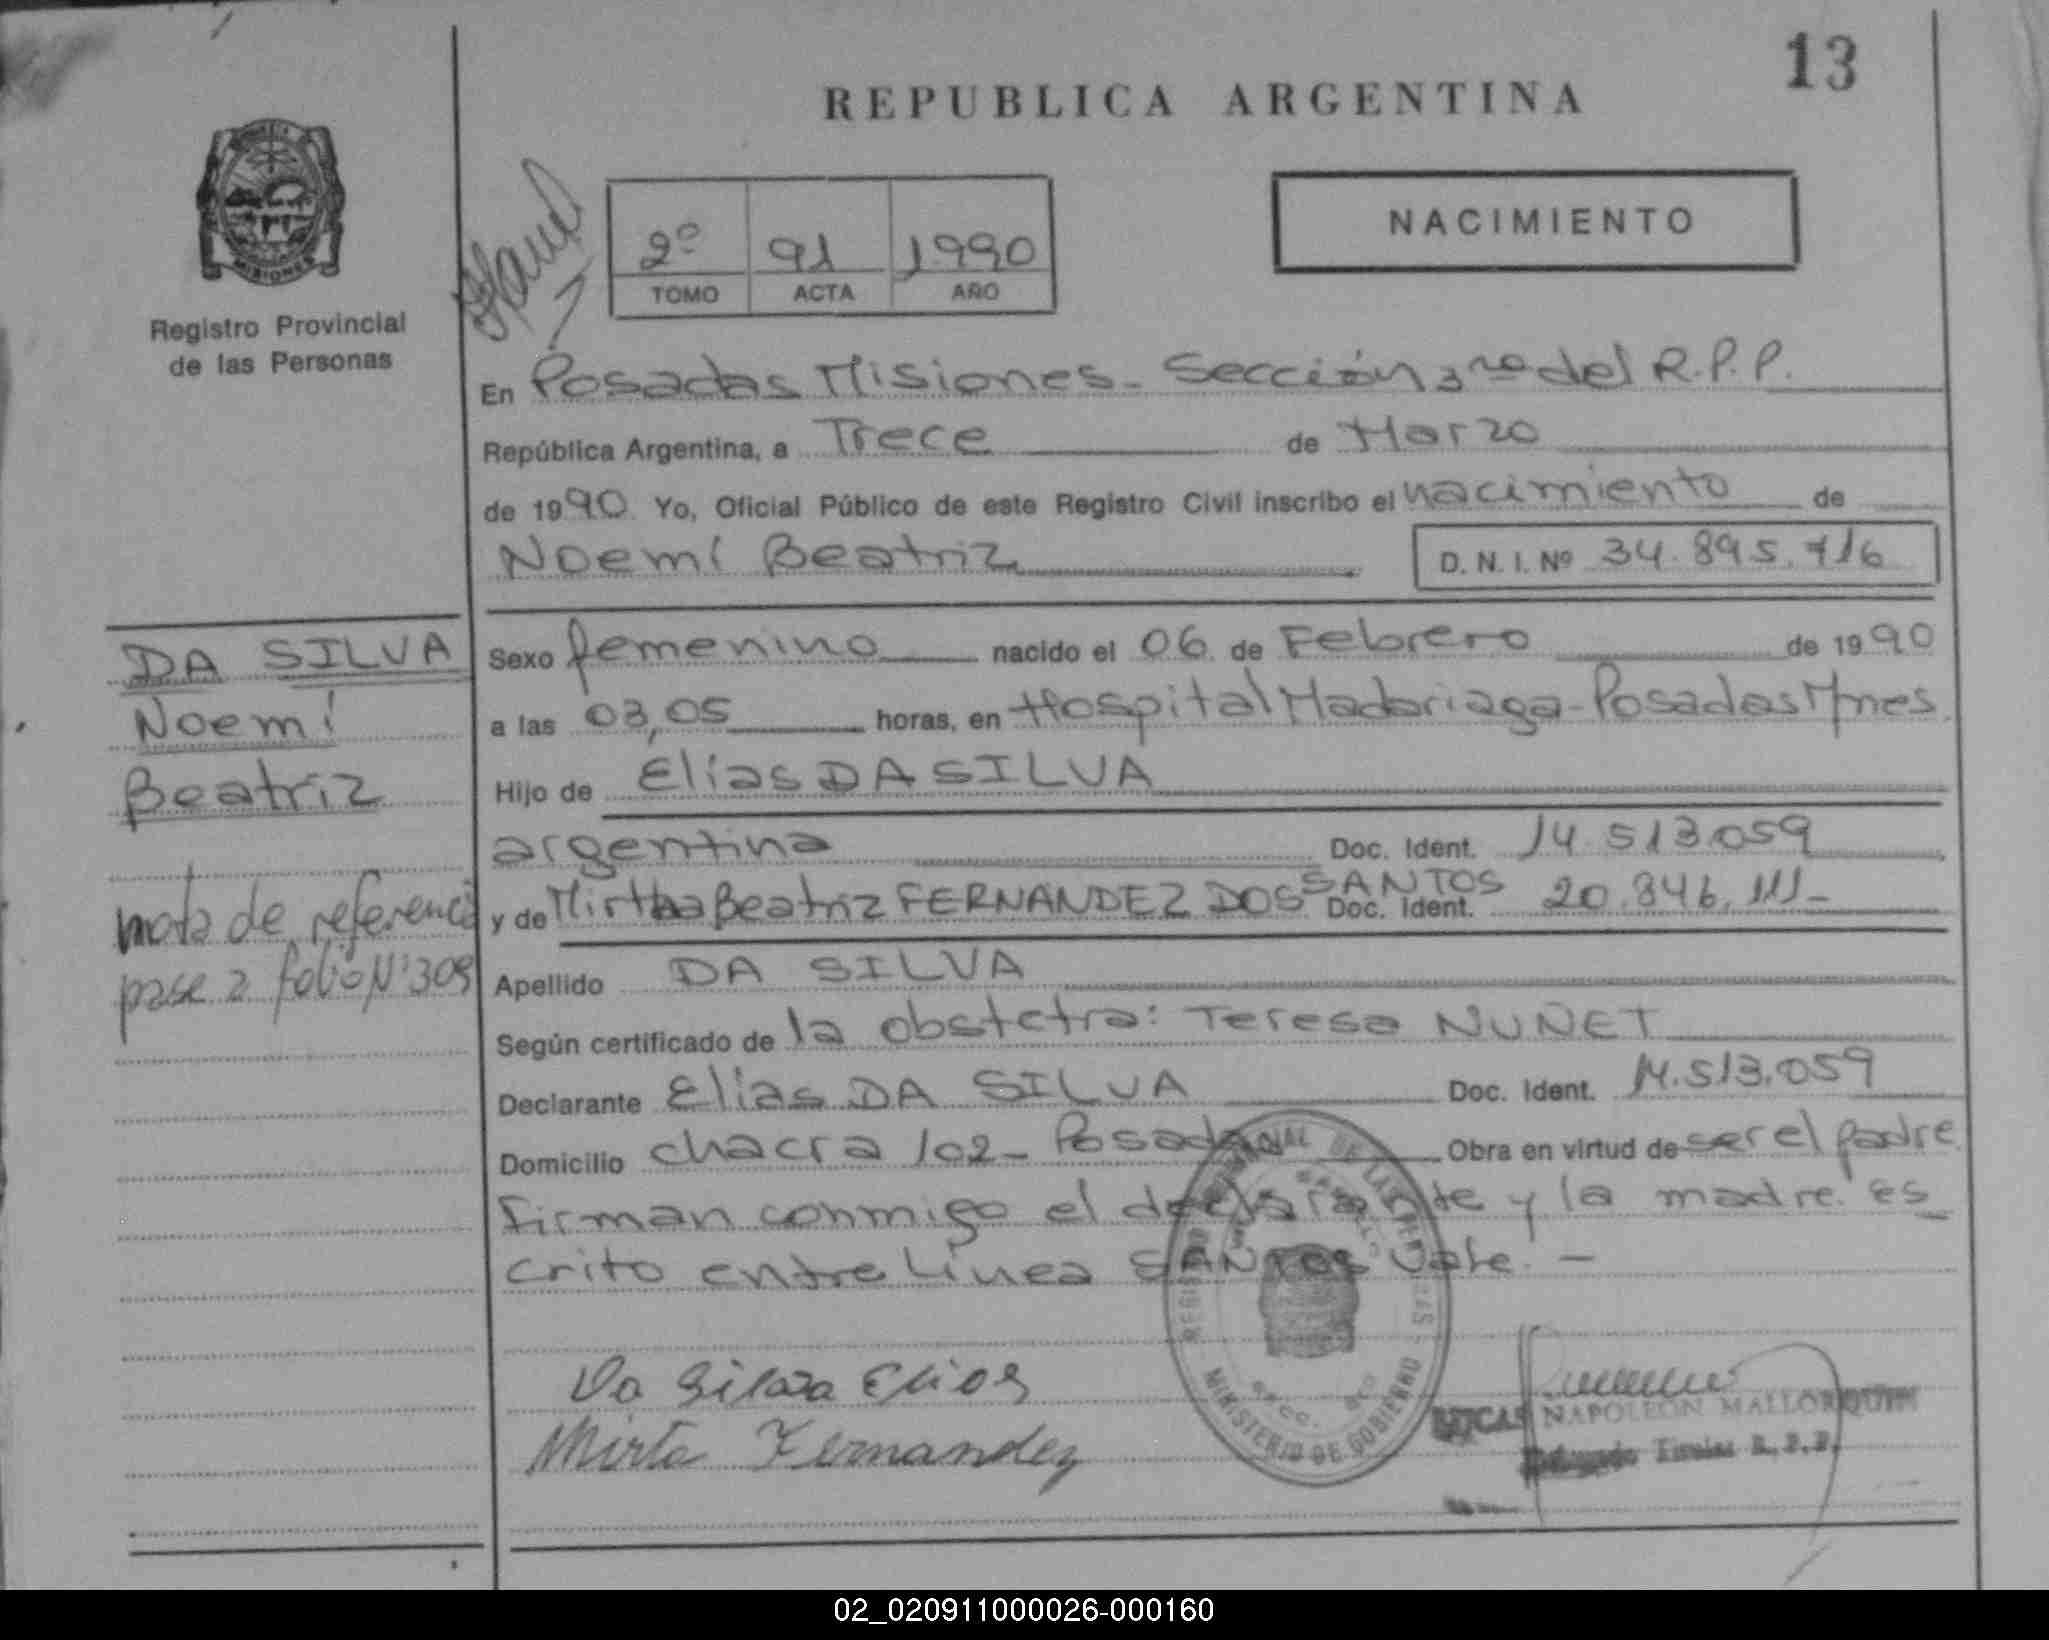 13
REPUBLICA ARGENTINA
NACIMIENTO
2º 91 1990
TOMO ACTA AÑO
MISIONES
Registro Provincial
de las Personas
En Posadas Misiones - Sección 3ra del R.P.P.
República Argentina, a Trece de Marzo
de 1990 Yo, Oficial Público de este Registro Civil inscribo el nacimiento de
Noemí Beatriz D. N. I. Nº 34.895.716
DA SILVA
Noemí
Beatriz
nota de referencia
pase a folio Nº 309
Sexo femenino nacido el 06 de Febrero de 1990
a las 03,05 horas, en Hospital Madariaga - Posadas Mnes.
Hijo de Elías DA SILVA
argentina Doc. Ident. 14.513.059
y de Mirtha Beatriz FERNANDEZ DOS SANTOS Doc. Ident. 20.846.111-
Apellido DA SILVA
Según certificado de la obstetra: Teresa NUÑET
Declarante Elías DA SILVA Doc. Ident. 14.513.059
Domicilio chacra 102 - Posadas Obra en virtud de ser el padre
firman conmigo el declarante y la madre. es
crito entre línea SANTOS Vale. -
MINISTERIO DE GOBIERNO
Da Silva Elias
Mirta Fernandez
LUCAS NAPOLEON MALLORQUIN
Delegado Titular R.P.P.
02_020911000026-000160